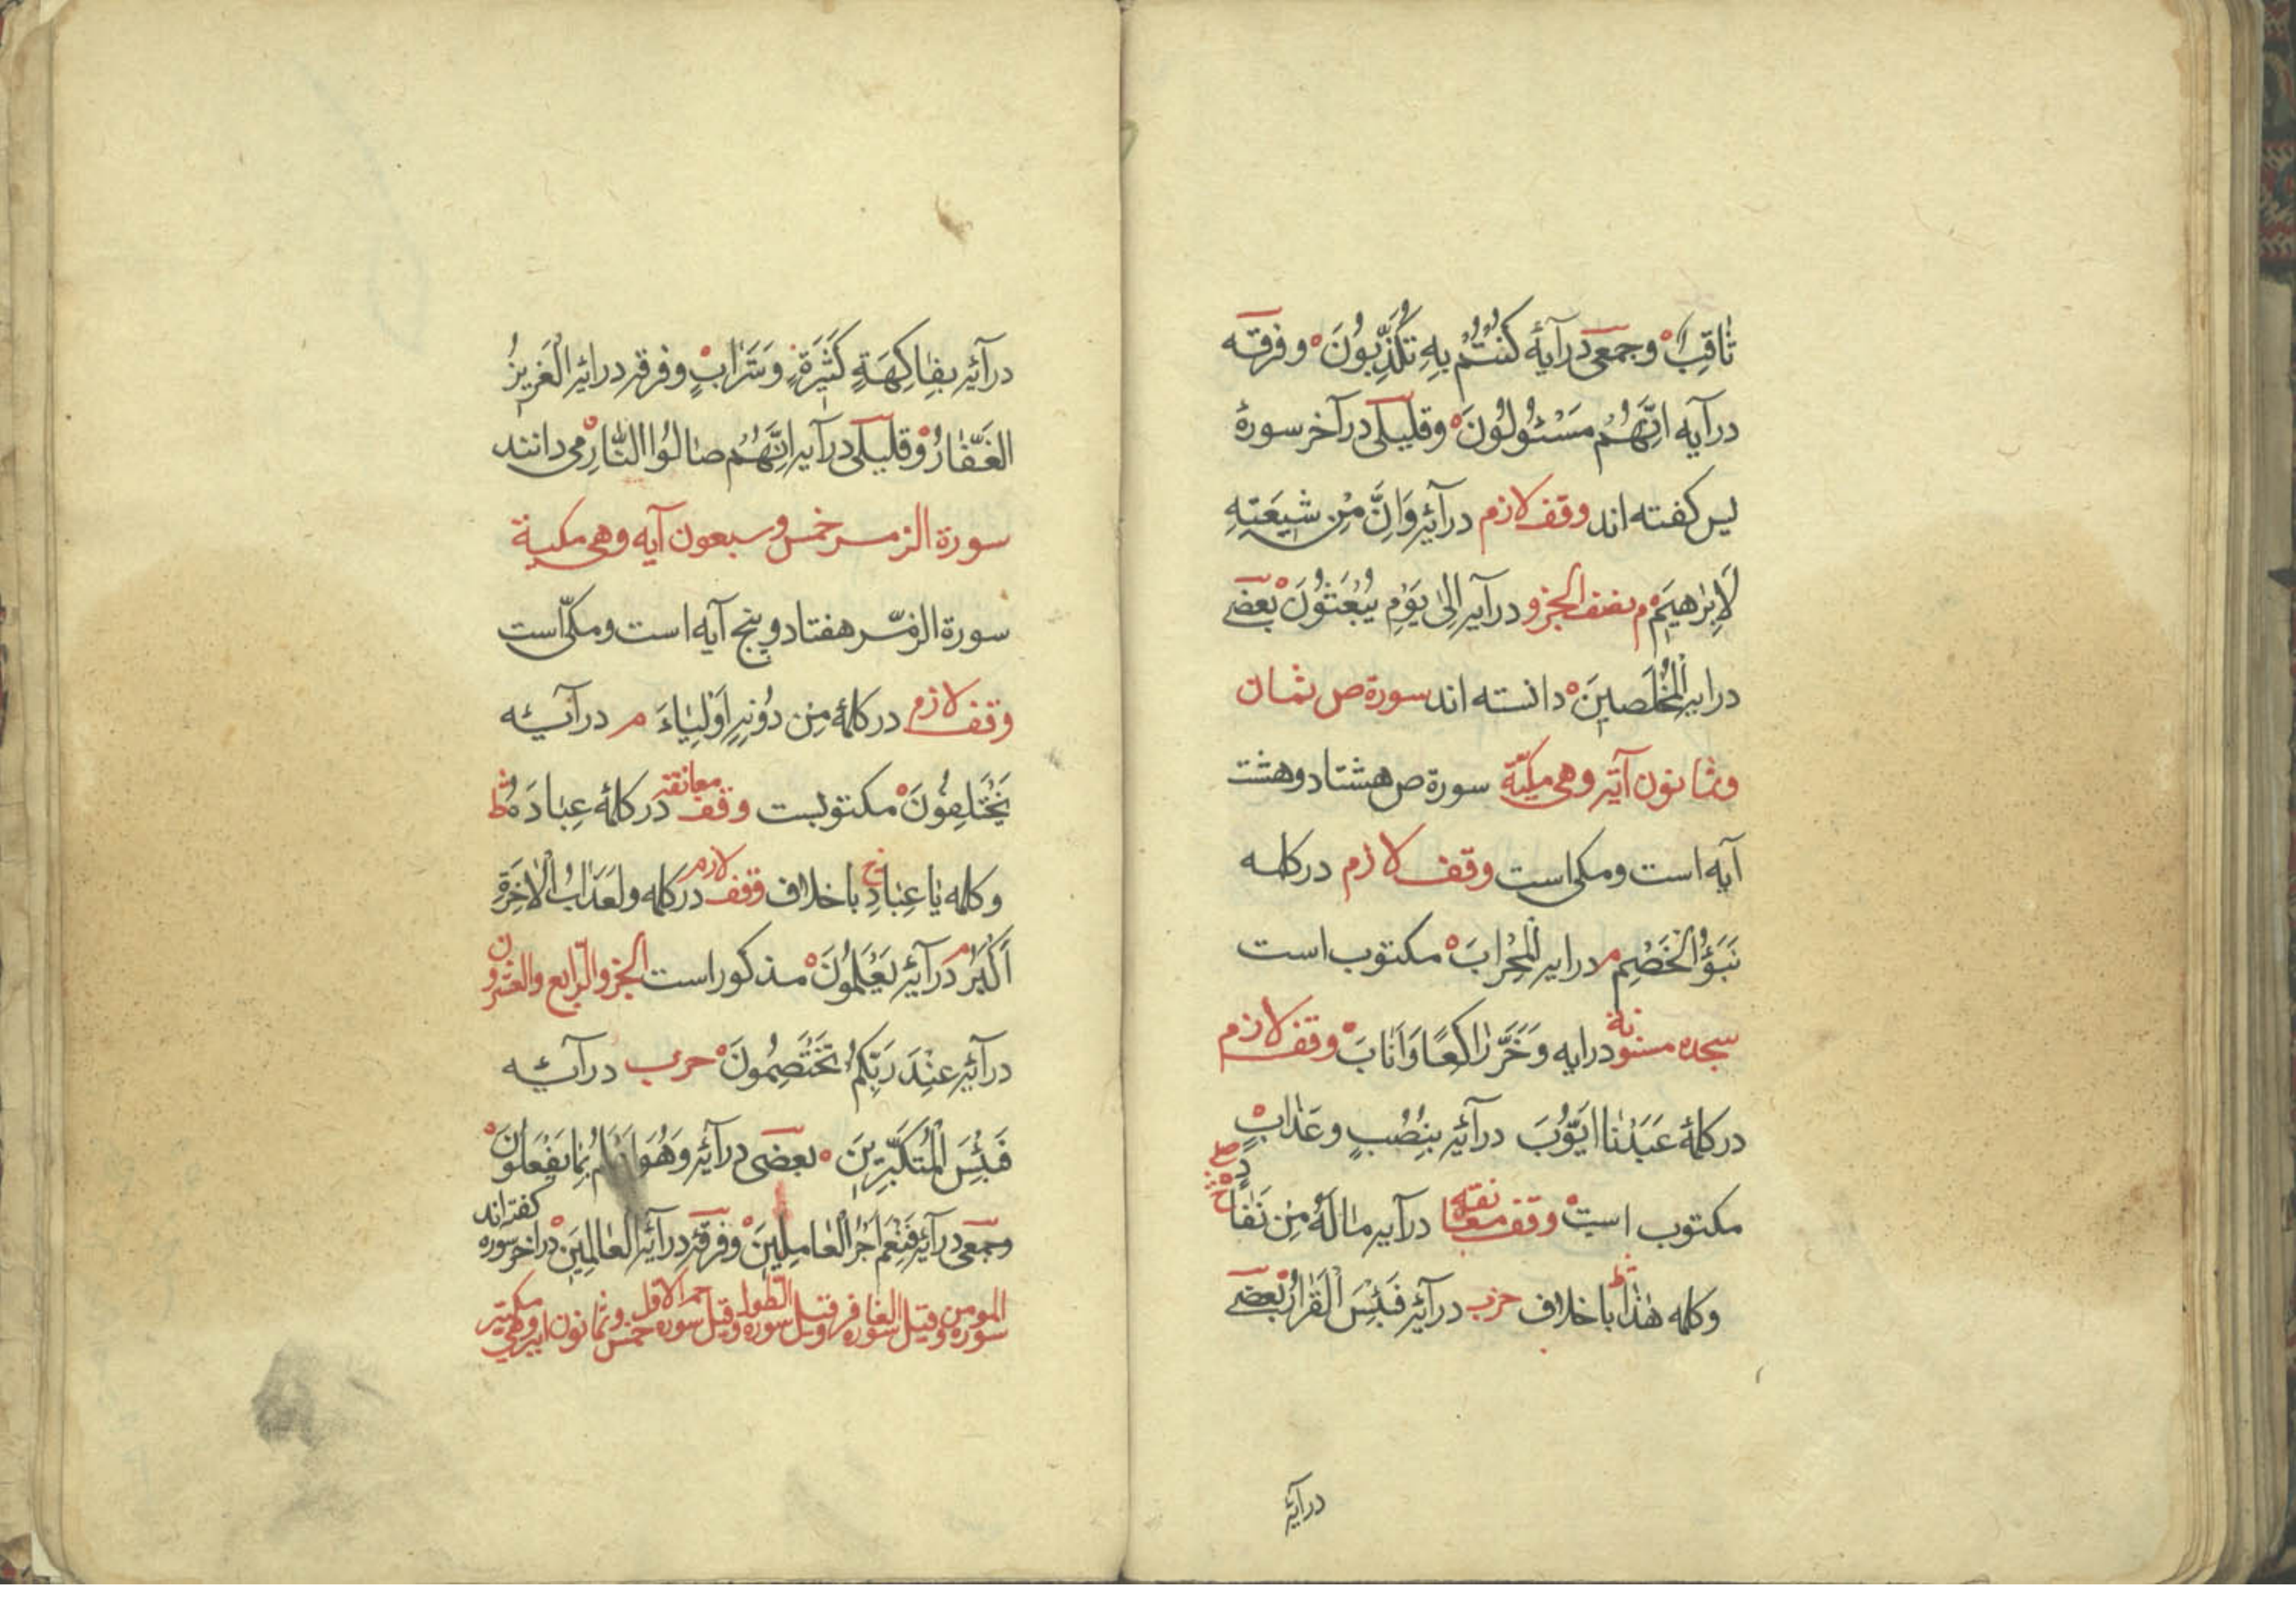 ثَاقِبٌ ه وجمعی درآیهٔ كُنْتُمْ بِهِ تُكَذِّبُونَ ه وفرقه
درآیه اِنَّهُمْ مَسْئُولُونَ ه وقلیلی درآخر سورهٔ
لیس کفته اند وقف لازم درآیهٔ وَاِنَّ مِنْ شِيعَتِهِ
لَاِبْرٰهِيمَ ه م نصف الجزو درآیه اِلٰى يَوْمِ يُبْعَثُونَ ه بعضی
درایه الْمُخْلَصِينَ ه دانسته اند سورة ص ثمان
وثمانون آیة وهی مکیّة سورة ص هشتاد وهشت
آیه است ومکی است وقف لازم درکلمه
نَبَؤُ الْخَصْمِ م درایه الْمِحْرَابَ ه مکتوب است
سجده مسنونة درایه وَخَرَّ رَاكِعًا وَاَنَابَ ه وقف لازم
درکلمهٔ عَبْدَنَا اَيُّوبَ درآیه بِنُصْبٍ وعَذَابٍ ه
مکتوب است ه وقف معانقة درآیه مَا لَهُ مِنْ نَفَادٍ
وکلمه هٰذَا باخلاف حزب درآیه فَبِئْسَ الْقَرَارُ ه بعضی
درآیهٔ
درآیه بِفَاكِهَةٍ كَثِيرَةٍ وَشَرَابٍ ه وفرقه درایه الْعَزِيزُ
الْغَفَّارُ ه وقلیلی درآیه اِنَّهُمْ صَالُوا النَّارِ ه می دانند
سورة الزمر خمس وسبعون آیه وهی مکیة
سورة الزمّر هفتاد وپنج آیه است ومکّی است
وقف لازم درکلمهٔ مِنْ دُونِهِ اَوْلِيَاءَ م درآیه
يَخْتَلِفُونَ ه مکتوبست وقف معانقه درکلمهٔ عِبَادَهُ ط
وکلمه يَا عِبَادِ باخلاف وقف لازم درکلمه ولَعَذَابُ الْاٰخِرَةِ
اَكْبَرُ م درآیه يَعْلَمُونَ ه مذکور است الجزو الرّابع والعشرون
درآیه عِنْدَ رَبِّكُمْ تَخْتَصِمُونَ ه حزب درآیه
فَبِئْسَ الْمُتَكَبِّرِينَ ه بعضی درآیه وَهُوَ اَعْلَمُ بِمَا يَفْعَلُونَ ه
وجمعی درآیه فَنِعْمَ اَجْرُ الْعَامِلِينَ ه وفرقه درآیه الْعَالَمِينَ ه درآخر سوره کفته اند
سورة المومن وقیل سورة الغافر وقیل سورة الطول وقیل سوره حم الاول خمس وثمانون آیه وهی مکیة